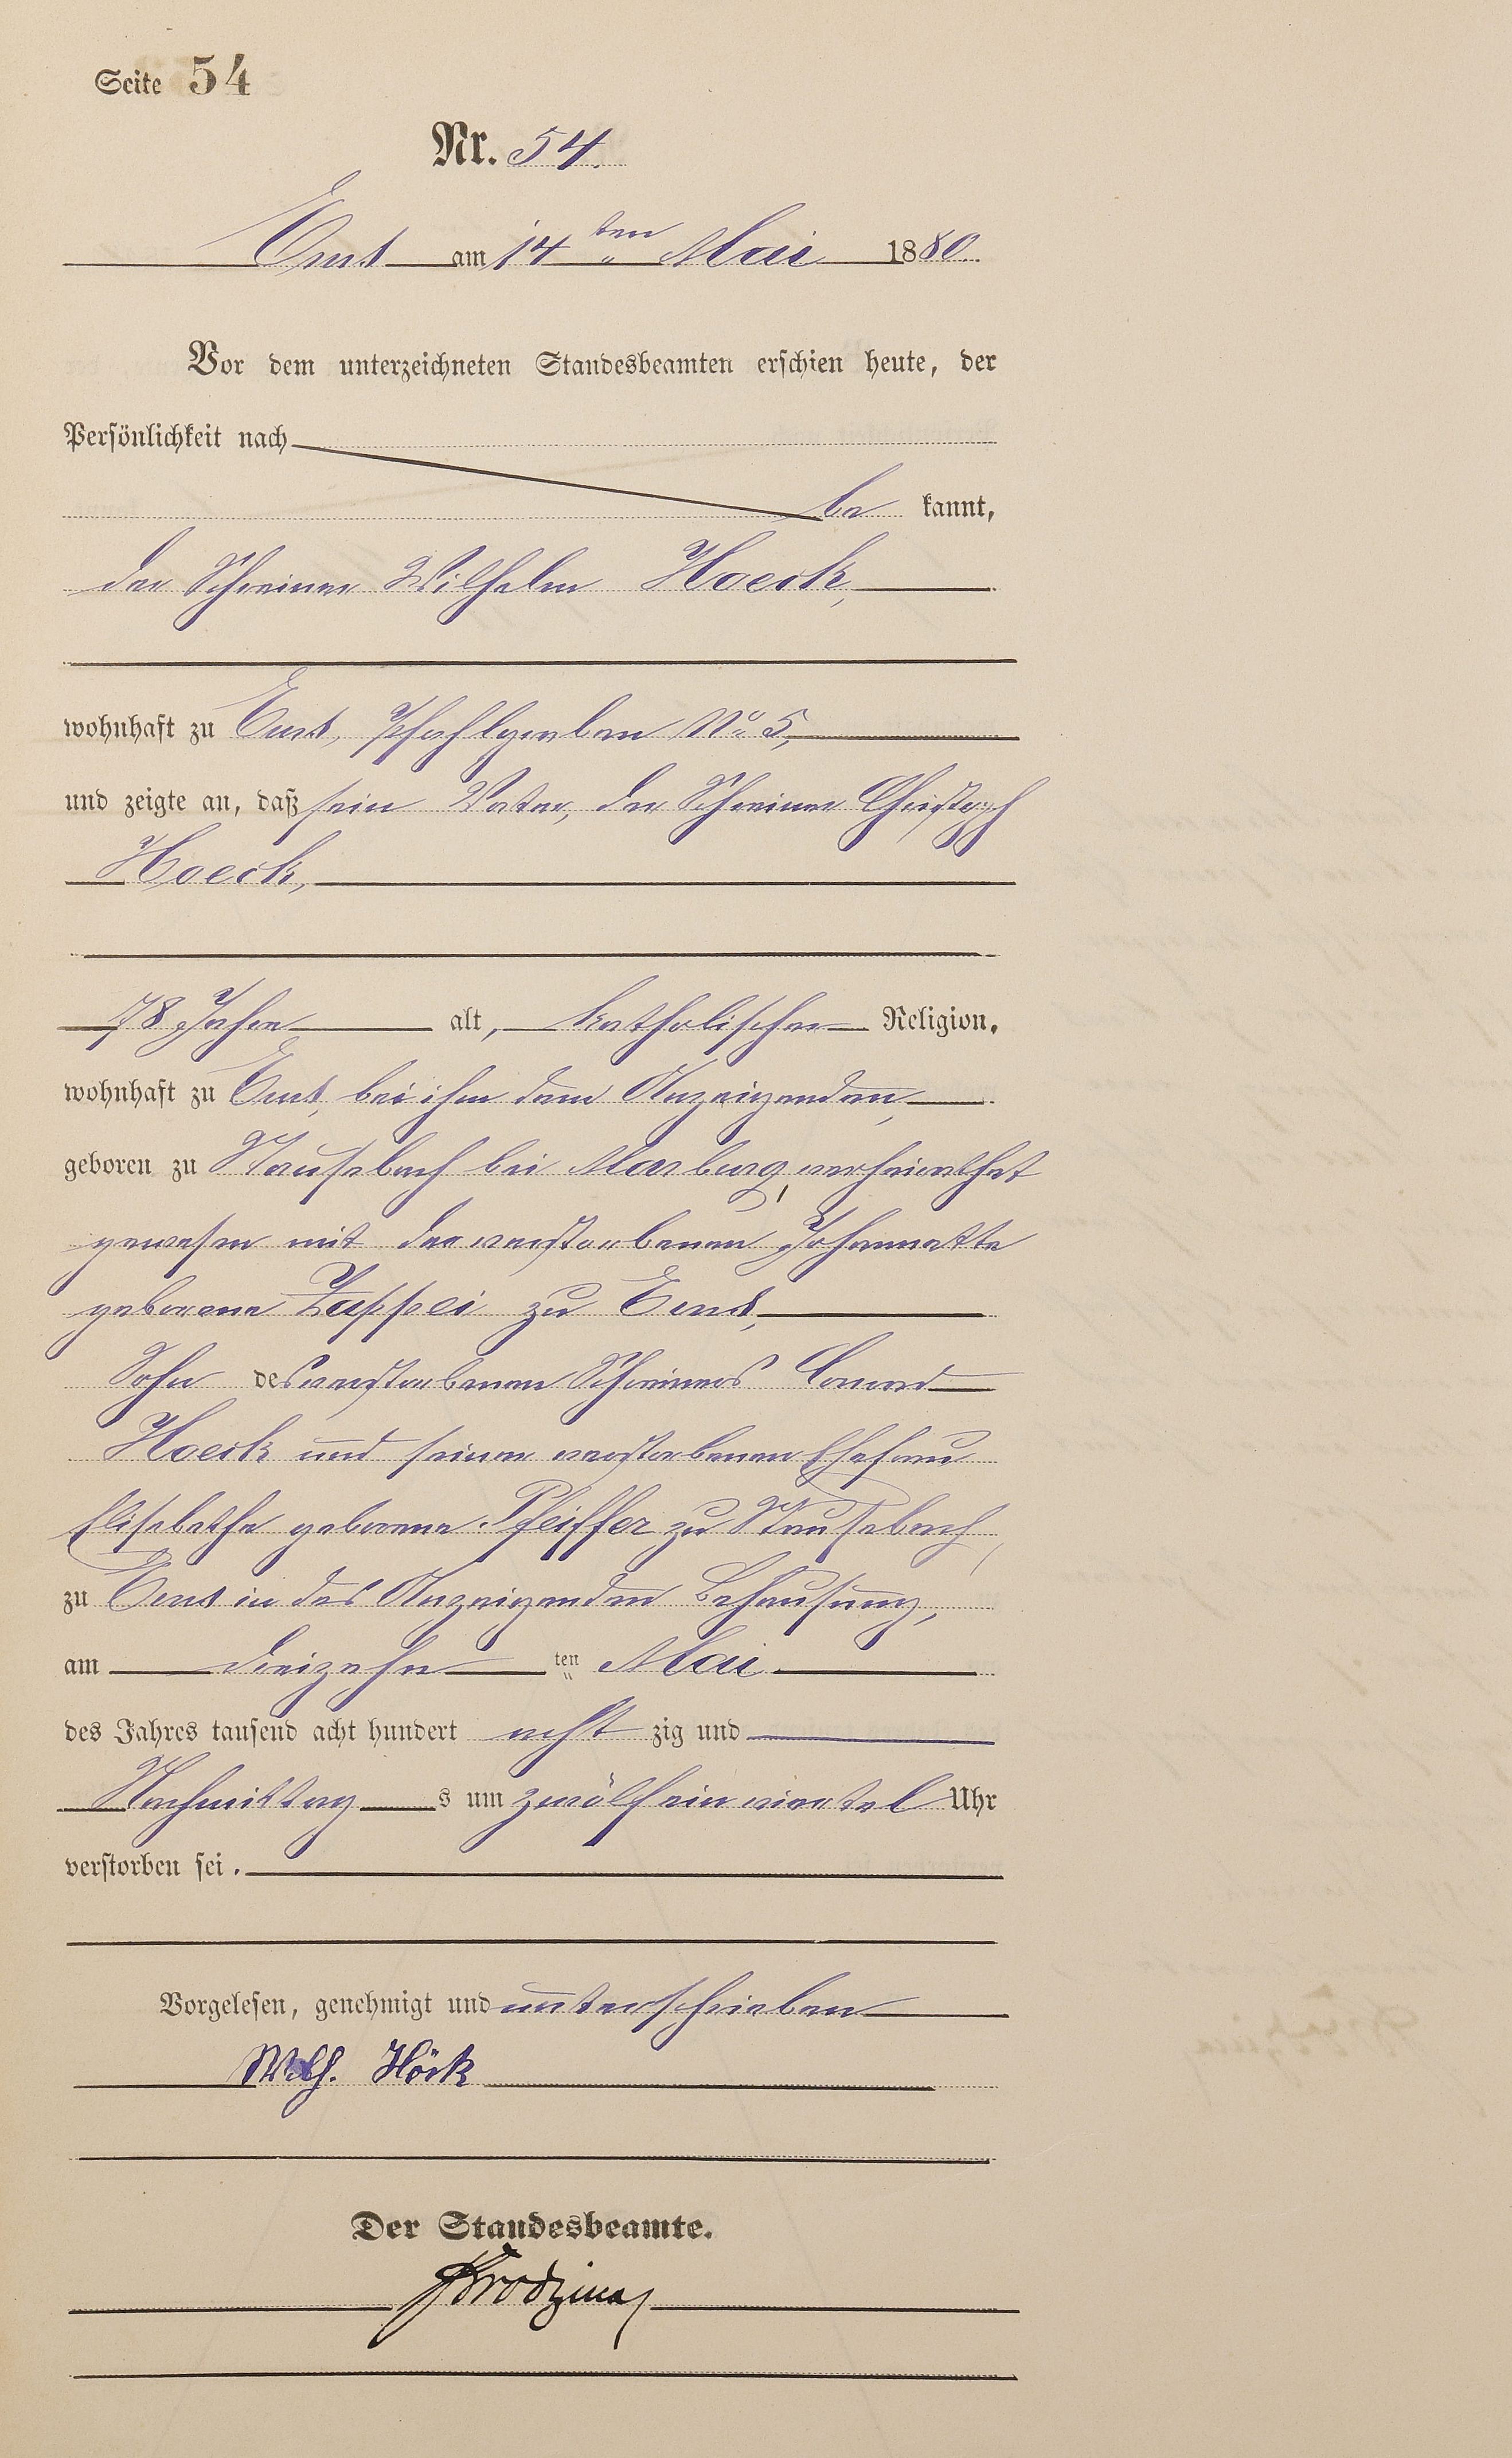 Seite 54
Nr. 54.
Ems am 14ten Mai 1880.
Vor dem unterzeichneten Standesbeamten erschien heute, der
Persönlichkeit nach
be kannt,
der Schreiner Wilhelm Hoeck,
wohnhaft zu Ems, Pfahlgraben No 5,
und zeigte an, daß sein Vater, der Schreiner Christoph
Hoeck,
78 Jahre alt, katholischer Religion,
wohnhaft zu Ems, bei ihm dem Anzeigenden,
geboren zu Stausebach bei Marburg, verheirathet
gewesen mit der verstorbenen Johannette
geborene Zuppei zu Ems,
Sohn des verstorbenen Schreiners Conrad
Hoeck und seiner verstorbenen Ehefrau
Elisabetha geborene Pfeiffer zu Stausebach,
zu Ems in des Anzeigenden Behausung,
am dreizehn ten Mai
des Jahres tausend acht hundert acht zig und
Nachmittag s um zwölf ein viertel Uhr
verstorben sei.
Vorgelesen, genehmigt und unterschrieben
Wilh. Höck
Der Standesbeamte.